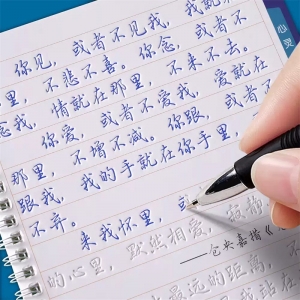 你见，或者不见我，我就
里，不悲不喜。你念，或者不
念我，情就在那里，不来不去。
你爱，或者不爱我，爱就
那里，不增不减。你跟，或者不
跟我，我的手就在你手里，
不弃。来我怀里，或
的心里，默然相爱，寂静
——仓央嘉措《
最远的距离，不
心灵